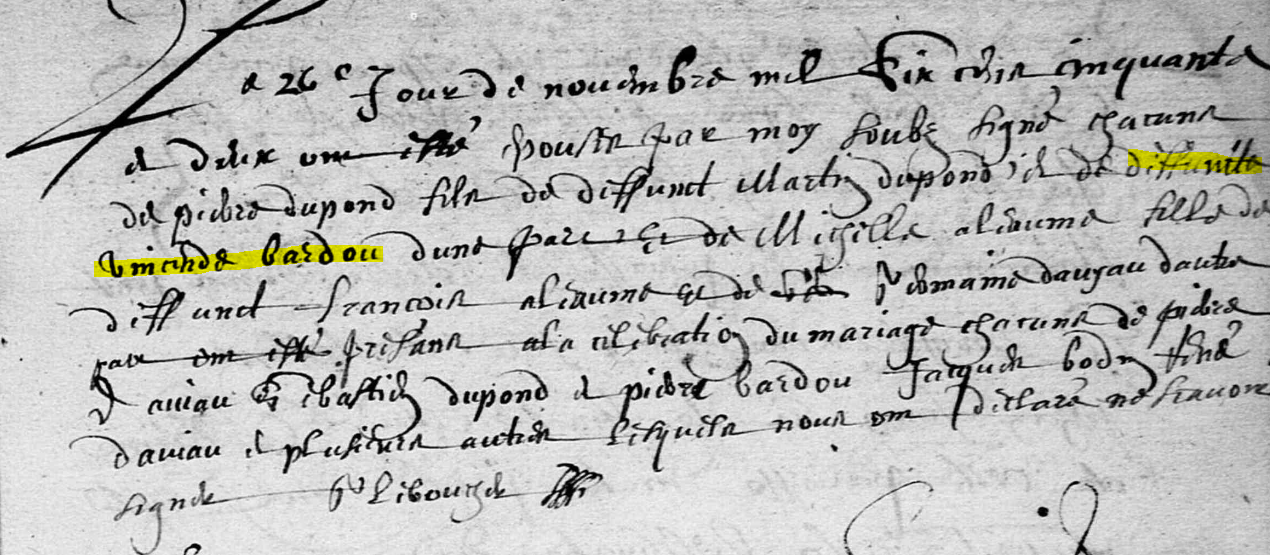 Le 26e Jour de novembre mil Six cens cinquante
et deux ont esté espousés par moy soubz signé chacuns
de pierre dupond fils de deffunct Martin dupond et de deffuncte
Vincende bardou dune part et de Michelle aleaume fille de
deffunct francois aleaume et de Romaine daviau dautre
part ont esté presans a la celebration du mariage chacuns de pierre
daviau Sebastien dupond et pierre bardou Jacques bodin René
daviau et plusieurs autres lesquels nous ont declaré ne scavoir
signer